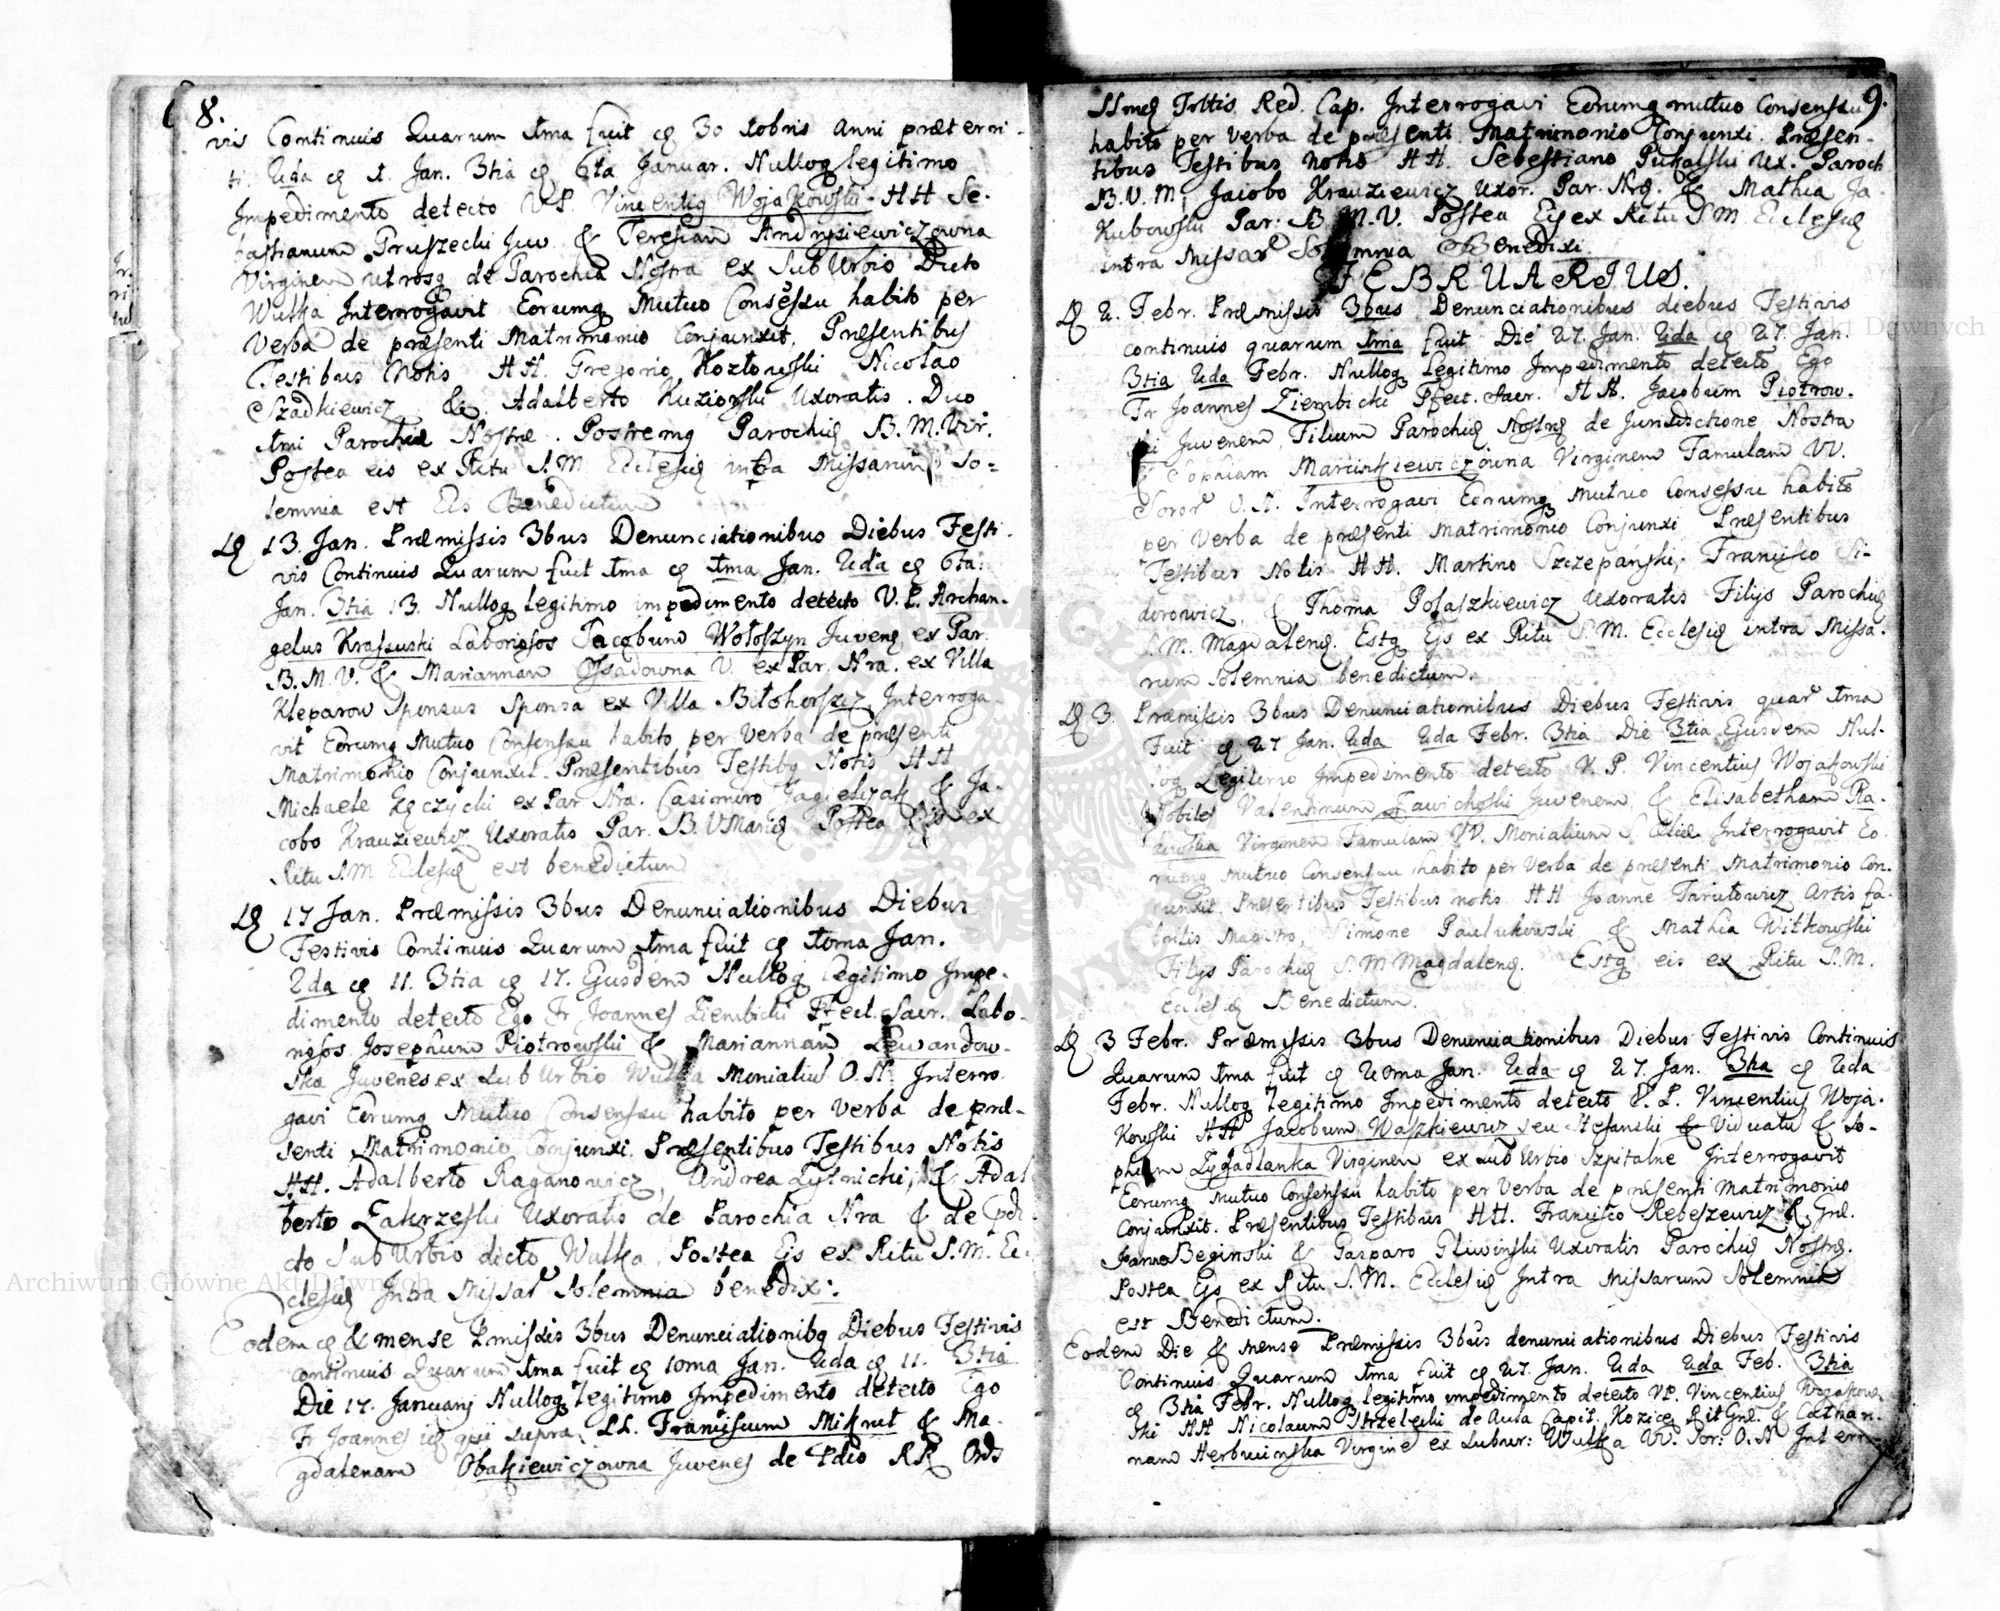 8.
vis Continuis Quarum 1ma fuit ę 30 xbris Anni præteri-
ti. 2da ę 1. Jan. 3tia ę 6ta Januar. Nulloq legitimo
Impedimento detecto V.P. Vincentiq Wojakowski HH Se-
bastianum Pruszecki Juv. & Teresiam Andrysiewiczowna
Virginem utrosq de Parochia Nostra ex SubUrbio Dicto
Wulka Interrogavit Eorumq Mutuo Consessu habito per
Verba de præsenti Matrimonio Conjunxit, Præsentibus
Testibus Notis HH. Gregorio Kozłowski Nicolao
Szadkiewicz & Adalberto Kuziorski Uxoratis. Duo
1mi Parochiæ Nostræ. Postremq Parochię B.M.Vir.
Postea eis ex Ritu S.M. Ecclesię intra Missarum So=
lemnia est Eis Benedictum
Lę 13. Jan. Præmissis 3bus Denunciationibus Diebus Festi-
vis Continuis Quarum fuit 1ma ę 1ma Jan. 2da ę 6ta.
Jan. 3tia 13. Nulloq legitimo impedimento detecto V.P. Archan-
gelus Krassuski Laboriosos Jacobum Wołoszyn Juvenę ex Par.
B.M.V. & Mariannam Ossadowna V. ex Par. Nra. ex Villa
Kleparow Sponsus Sponsa ex Villa Biłohorszcz Interroga-
vit Eorumq Mutuo Consensu habito per Verba de præsenti
Matrimonio Conjunxit. Præsentibus Testibq Notis HH
Michaele Łęczycki ex Par Nra. Casimiro Jagielszak & Ja-
cobo Krauziewicz Uxoratis Par. B.V Marię Postea Eis ex
Ritu S.M Ecclesię est benedictum
Lę 17 Jan. Præmissis 3bus Denunciationibus Diebus
Festivis Continuis Quarum 1ma fuit ę 10ma Jan.
2da ę 11. 3tia ę 17. Ejusdem Nulloq legitimo Impe-
dimento detecto Ego Fr Joannes Ziembicki Pfect. Sacr. Labo-
riosos Josephum Piotrowski & Mariannam Lewandow-
ska Juvenes ex Sub Urbio Wulka Monialiu O.N. Interro-
gavi Eorumq Mutuo Consensu habito per Verba de præ-
senti Matrimonio Conjunxi. Præsentibus Testibus Notis
HH. Adalberto Raganowicz, Andrea Lytnicki, & Adal
berto Zakrzeski Uxoratis de Parochia Nra & de Pdi-
cto SubUrbio dicto Wulka. Postea Ejs ex Ritu S.M. Ec-
clesię Intra Missar Solemnia benedixi:
Eodem ę & mense Pmissis 3bus Denunciationibq Diebus Festivis
continuis Quarum 1ma fuit ę 10ma Jan. 2da ę 11. 3tia
Die 17. Januarij Nulloq legitimo Impedimento detecto Ego
Fr Joannes ię qui supra, LL. Franciscum Miknut & Ma-
gdalenam Obakiewiczowna Juvenes de Pdio RR Ords
9.
SSmę Trltis Red. Cap. Interrogavi Eorumq mutuo Consensu
habito per Verba de præsenti Matrimonio Conjunxi Præsen-
tibus Testibus Notis HH. Sebestiano Pukalski Ux. Paroch
B.V.M. Jacobo Krauziewicz Uxor. Par. Nrę. & Mathia Ja-
kubowski Par. B.M.V. Postea Ejs ex Ritu S M Ecclesię
intra Missar Solemnia Benedixi
FEBRUARIUS.
Lę 2. Febr. Præmissis 3bus Denunciationibus diebus Festivis
continuis quarum 1ma fuit Die 27. Jan. 2da ę 27. Jan.
3tia 2da Febr. Nulloq Legitimo Impedimento detecto Ego
Fr Joannes Ziembicki Pfect. Sacr. HH. Jacobum Piotrow-
ski Juvenem, Filium Parochię Nostrę de Jurisdictione Nostra
& Sophiam Marcinkiewiczowna Virginem Famulam VV.
Soror O.N. Interrogavi Eorumq Mutuo Consessu habito
per Verba de præsenti Matrimonio Conjunxi Præsentibus
Testibus Notis HH. Martino Szczepański, Francisco Si-
dorowicz, & Thoma Połaszkiewicz Uxoratis Filijs Parochię
S.M. Magdalenę. Estq Ejs ex Ritu S.M. Ecclesię intra Missa-
rum Solemnia benedictum.
Lę 3. Præmissis 3bus Denunciationibus Diebus Festivis quar 1ma
Fuit ę 27 Jan. 2da 2da Febr. 3tia Die 3tia Ejusdem Nul-
loq Legitimo Impedimento detecto V.P. Vincentius Wojakowski
Nobiles Valentinum Zawichoski Juvenem, & Elisabetham Ra-
Virginem Famulam VV. Monialium Interrogavit Eo-
rumq Mutuo Consensu habito per Verba de præsenti Matrimonio Con-
junxit. Præsentibus Testibus notis HH Joanne Tarułowicz Artis fa-
brilis Magistro, Simone Paulukowski & Mathia Witkowski
Filijs Parochię S.M Magdalenę. Estq eis ex Ritu S.M.
Ecclesię Benedictum.
Lę 3 Febr. Præmissis 3bus Denunciationibus Diebus Festivis Continuis
Quarum 1ma fuit ę 20ma Jan. 2da ę 27. Jan. 3tia ę 2da
Febr. Nulloq Legitimo Impedimento detecto V.P. Vincentius Woja-
kowski HH Jacobum Waszkiewicz seu Stefanski & Viduatu & So-
phiam Zygadlanka Virginem ex SubUrbio Szpitalne Interrogavit
Eorumq Mutuo Consensu habito per Verba de præsenti Matrimonio
Conjunxit. Præsentibus Testibus HH. Francisco Rebeszewicz R. Gnl.
Joanne Beginski & Gasparo Gliwinski Uxoratis Parochię Nostrę.
Postea Ejs ex Ritu S.M. Ecclesię Intra Missarum Solemnia
est Benedictum.
Eodem Die & Mense Præmissis 3bus denunciationibus Diebus Festivis
Continuis Quarum 1ma fuit ę 27. Jan. 2da 2da Feb. 3tia
ę 3tia Febr. Nulloq legitimo impedimento detecto VP. Vincentius Wojakow-
ski HH Nicolaum Strzelecki de Aula Capit. Kozicę Rit Gnl. & Cathari-
nam Herbucinska Virgine ex Suburb: Wulka VV. Sor: O.N Interro-
Archiwum Główne Akt Dawnych
Archiwum Główne Akt Dawnych